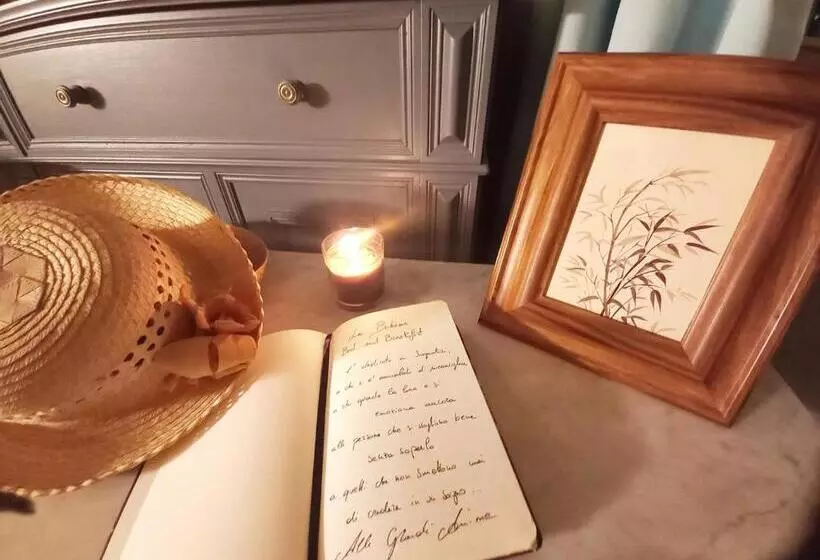 La Bohème
Bed and Breakfast
è dedicato a Sognatori,
a chi si è ammalato di meraviglia
a chi guarda la luna e si
emoziona ancora
alle persone che si vogliono bene
senza saperlo
a quelli che non smettono mai
di credere in un sogno...
Alle Grandi Anime